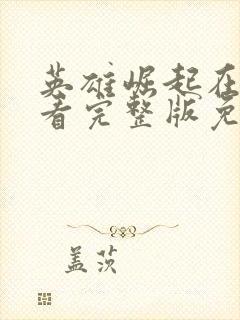 英雄崛起在
看完整版免
盖茨